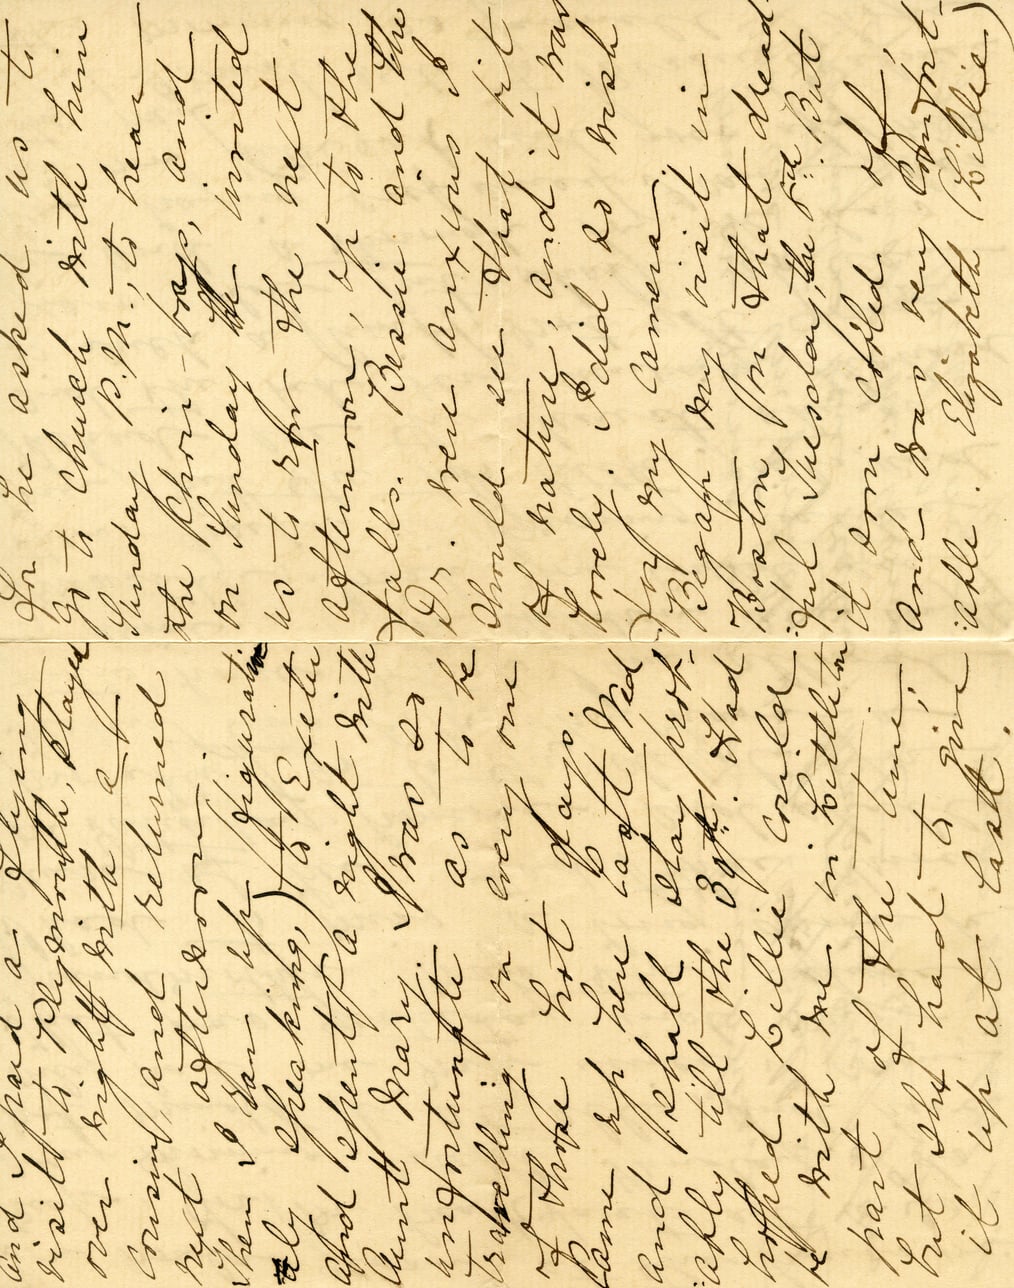 and I paid a flying
visit to Plymouth, stayed
over night with a
cousin, and returned
next afternoon.
Then I ran up (figurative
ly speaking,) to Exeter
and spent a night with
Aunt Mary. I was so
unfortunate as to be
travelling on every one
of those hot days.
Came up here last Wed
and shall stay prob-
ably till the 29th. Had
hoped Lillie could
be with me in Littleton
part of the time,
but she had to give
it up at last.
for he asked us to
go to church with him
Sunday P.M., to hear
the choir-boys, and
on Sunday he invited
us to row the next
afternoon, up to the
Falls. Bessie and the
Dr. were anxious I
should see that bit
of nature, and it was
lovely. I did so wish
for my camera.
Began my visit in
Boston on that dread-
ful Tuesday, the 5th. But
it soon cooled off,
and was very comfort-
able. Elizabeth (Lillie)